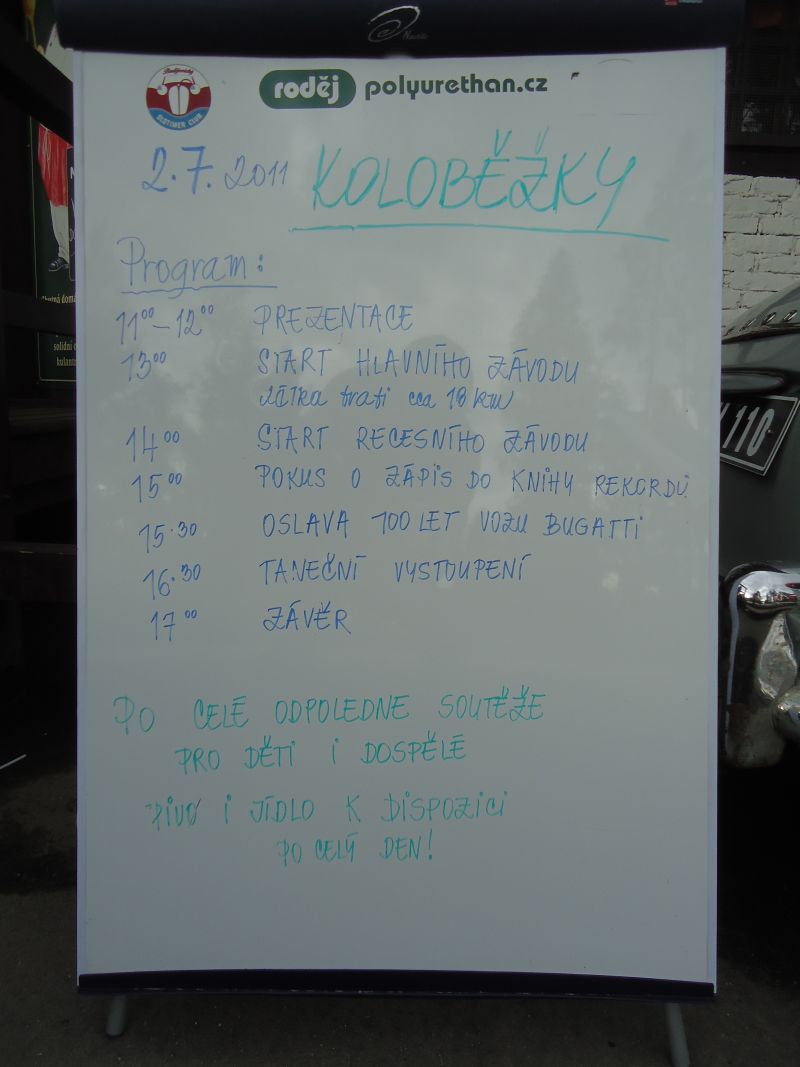 OLDTIMER CLUB
roděj polyurethan.cz
2.7. 2011 KOLOBĚŽKY
Program:
11⁰⁰-12⁰⁰ PREZENTACE
13⁰⁰ START HLAVNÍHO ZÁVODU
délka trati cca 18 km
14⁰⁰ START RECESNÍHO ZÁVODU
15⁰⁰ POKUS O ZÁPIS DO KNIHY REKORDŮ
15.30 OSLAVA 100 LET VOZU BUGATTI
16.30 TANEČNÍ VYSTOUPENÍ
17⁰⁰ ZÁVĚR
PO CELÉ ODPOLEDNE SOUTĚŽE
PRO DĚTI I DOSPĚLÉ
PIVO I JÍDLO K DISPOZICI
PO CELÝ DEN!
110